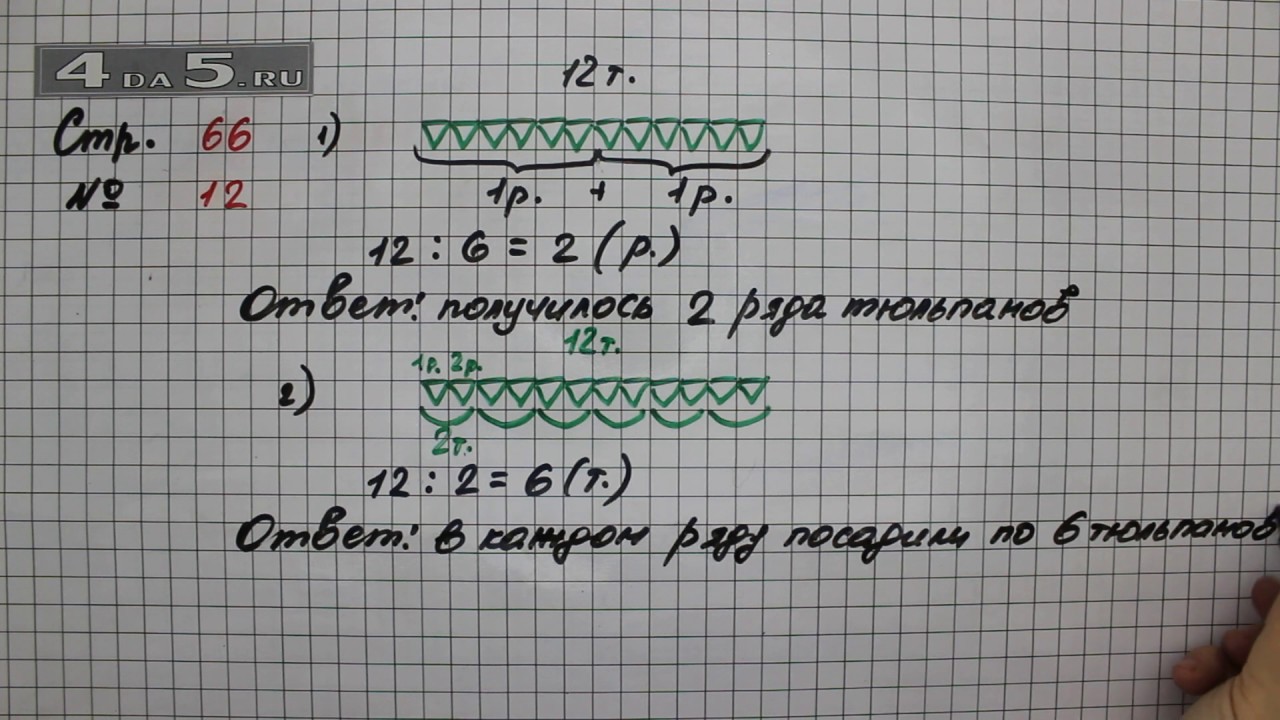 4DA5.RU
12 т.
Стр. 66 1)
№ 12
1р. + 1р.
12 : 6 = 2 (р.)
Ответ: получилось 2 ряда тюльпанов
12т.
1р. 2р.
2)
2т.
12 : 2 = 6 (т.)
Ответ: в каждом ряду посадили по 6 тюльпанов